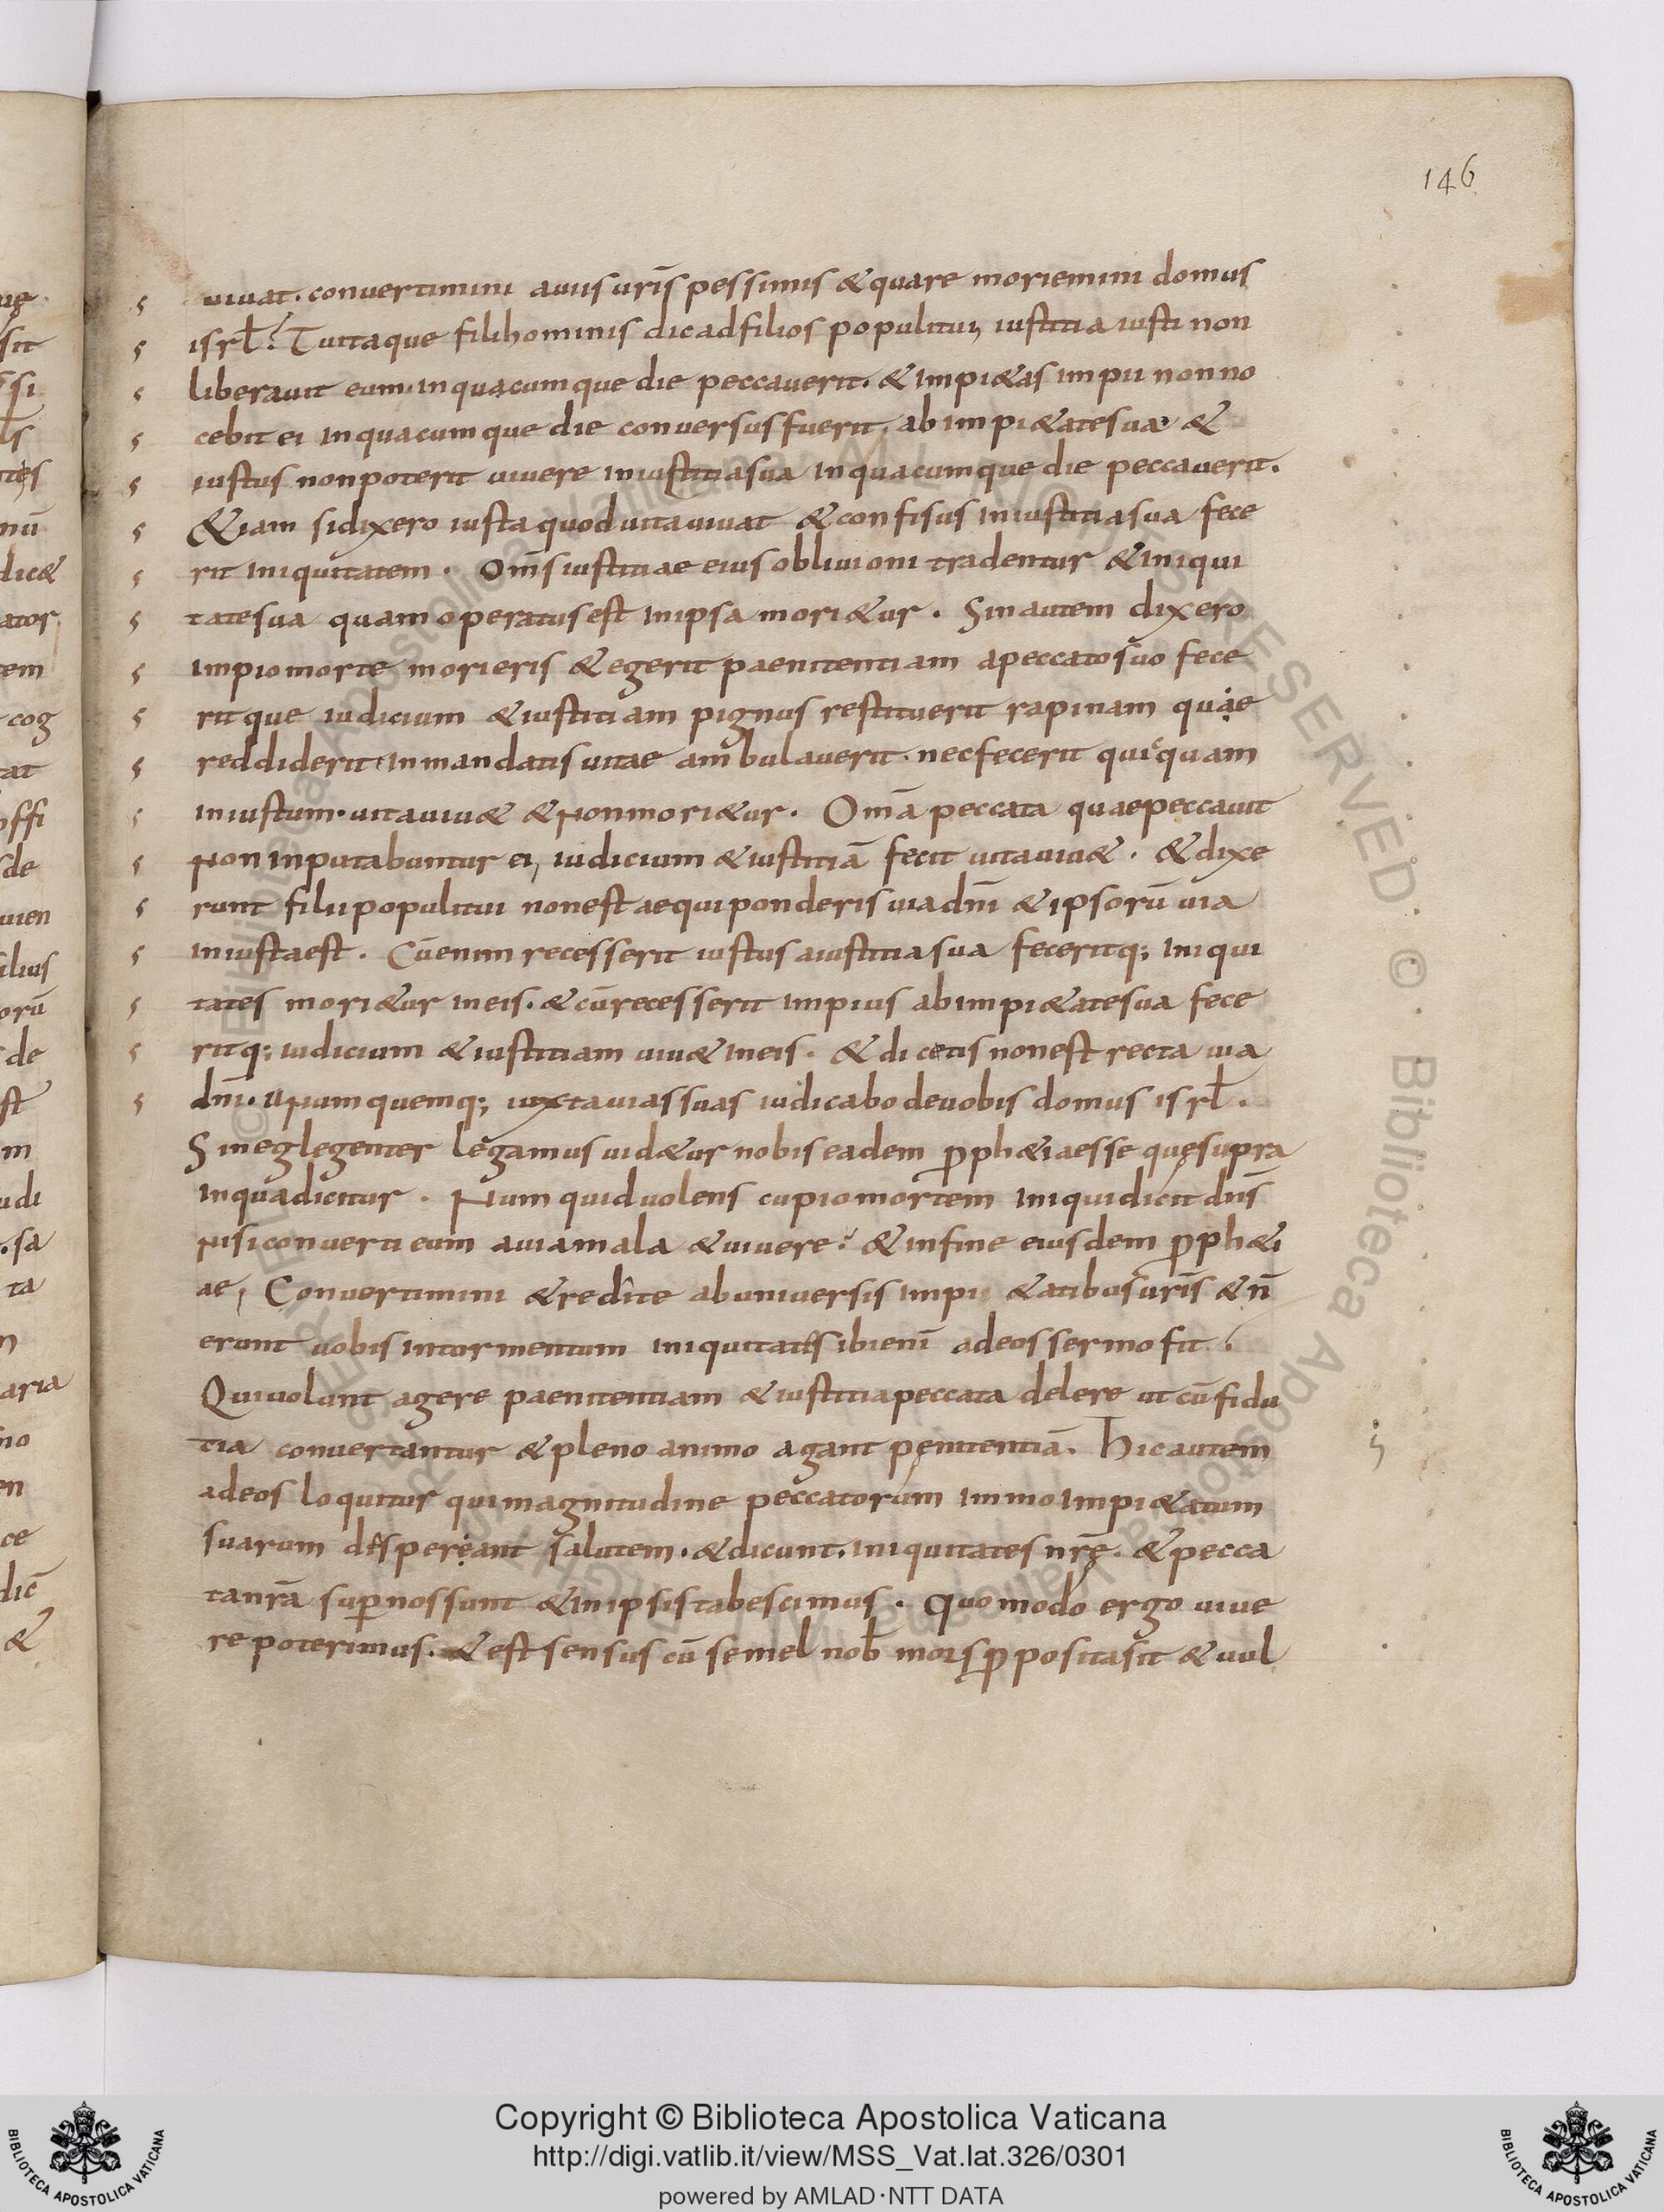 146
uiuat. conuertimini auiis uris̄ pessimis & quare moriemini domus
isrl̄? Tu itaque fili hominis dic ad filios populi tui, iustitia iusti non
liberauit eum. in quacumque die peccauerit. & impi&as impii non no
cebit ei in quacumque die conuersus fuerit. ab impi&ate sua &
iustus non poterit uiuere in iustitia sua in quacumque die peccauerit.
&iam si dixero iusta quod uita uiuat & confisus in iustitia sua fece
rit iniquitatem. Omīs iustitiae eius obliuioni tradentur & in iniqui
tate sua quam operatus est in ipsa mori&ur. Sin autem dixero
impio morte morieris & egerit paenitentiam a peccato suo fece
rit que iudicium & iustitiam pignus restituerit rapinam quae
reddiderit in mandatis uitae ambulauerit. nec fecerit quicquam
iniustum. uita uiu& & non mori&ur. Omā peccata quae peccauit
non inputabuntur ei, iudicium & iustitiā fecit uita uiu&. & dixe
runt filii populi tui non est aequi ponderis uia dnī & ipsorū uia
iniusta est. Cū enim recesserit iustus a iustitia sua feceritq; iniqui
tates mori&ur in eis. & cū recesserit impius ab impi&ate sua fece
ritq; iudicium & iustitiam uiu& in eis. & dicetis non est recta uia
dnī. unum quemq; iuxta uias suas iudicabo de uobis domus isrl̄.
Si neglegenter legamus uid&ur nobis eadem ꝓph&ia esse que supra
in qua dicitur. Num quid uolens cupio mortem iniqui dicit dns̄
nisi conuerti eum a uia mala & uiuere? & in fine eiusdem ꝓph&i
ae, Conuertimini & redite ab uniuersis impii &atibus uris̄ & n̄
erunt uobis in tormentum iniquitates ibi enī ad eos sermo fit.
Qui uolunt agere paenitentiam & iustitia peccata delere ut cū fidu
tia conuertantur & pleno animo agant penitentiā. Hic autem
ad eos loquitur qui magnitudine peccatorum immo impi&atum
suarum desperant salutem. & dicunt. iniquitates nrę̄. & pecca
ta nrā sup̄ nos sunt & in ipsis tabescimus. Quomodo ergo uiue
re poterimus. & est sensus cū semel nob̄ mors ꝓposita sit & uul
Copyright © Biblioteca Apostolica Vaticana
http://digi.vatlib.it/view/MSS_Vat.lat.326/0301
powered by AMLAD·NTT DATA
BIBLIOTECA APOSTOLICA VATICANA
BIBLIOTECA APOSTOLICA VATICANA